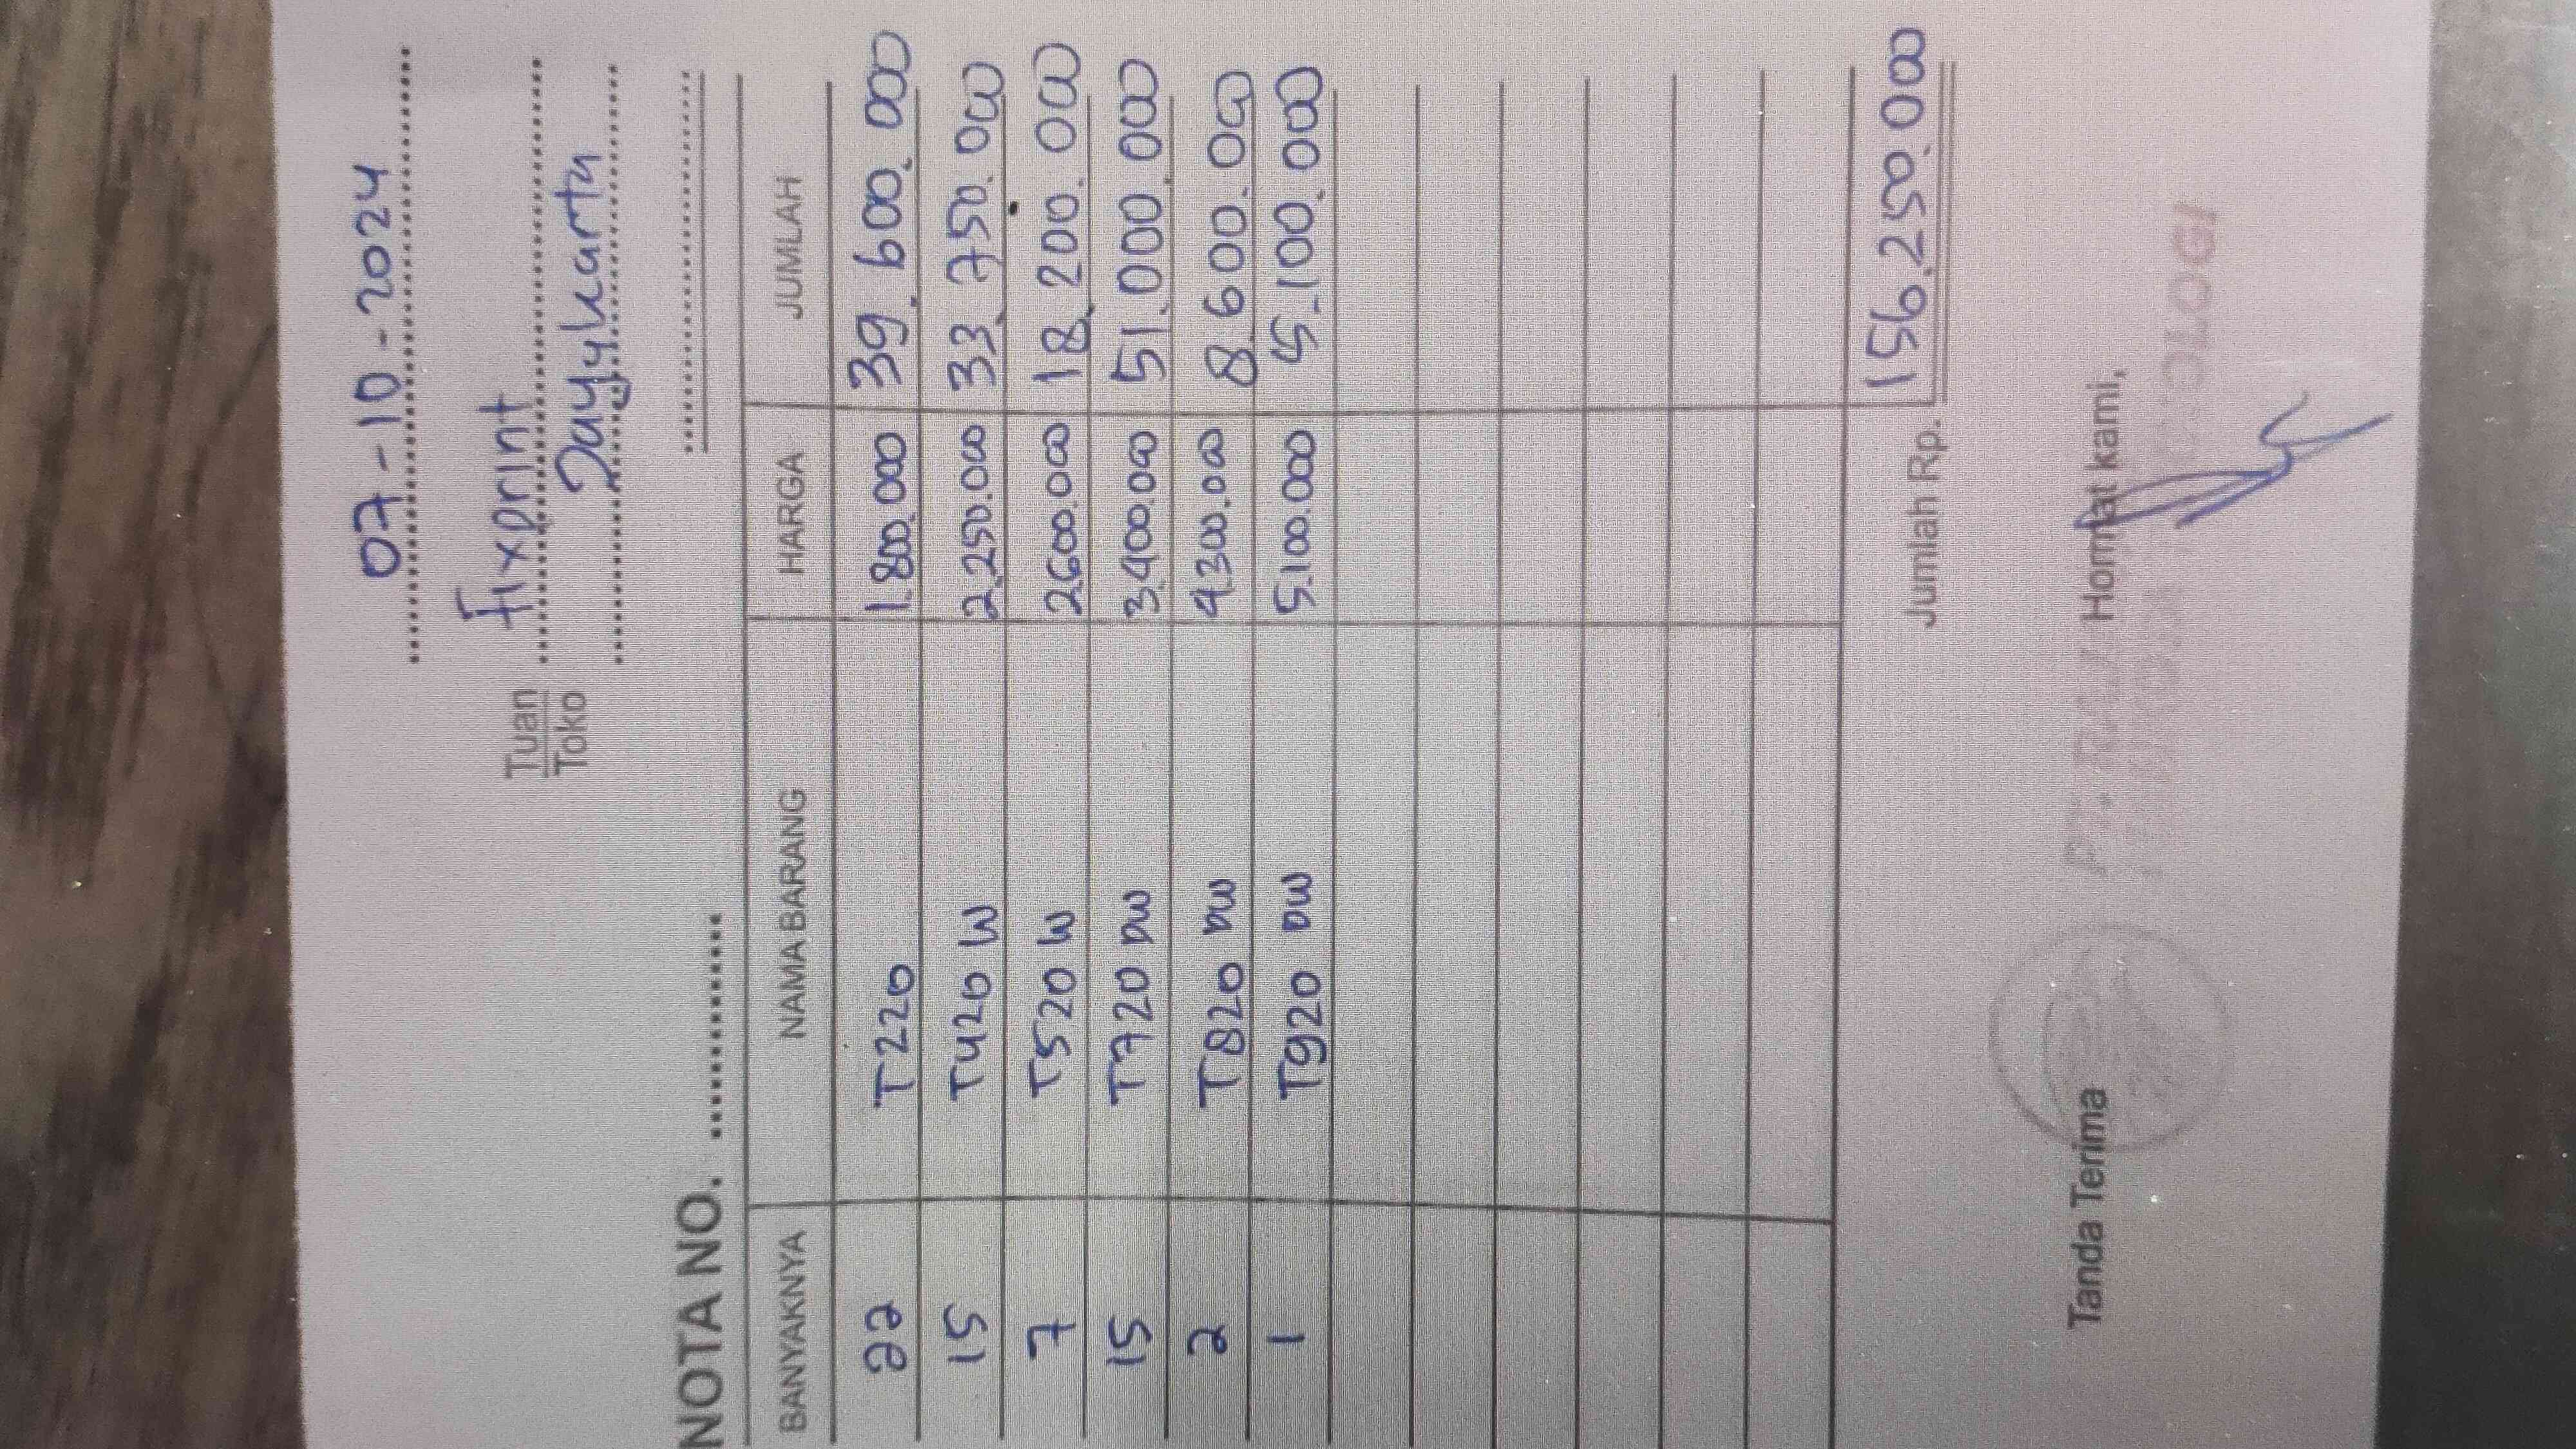 07-10-2024
Tuan Fixprint
Toko Jayakarta
NOTA NO. ............
BANYAKNYA NAMA BARANG HARGA JUMLAH
22 T220 1.800.000 39.600.000
15 T420 W 2.250.000 33.750.000
7 T520 W 2.600.000 18.200.000
15 T720 DW 3.400.000 51.000.000
2 T820 DW 4.300.000 8.600.000
1 T920 DW 5.100.000 5.100.000
Jumlah Rp. 156.250.000
Tanda Terima Hormat kami,